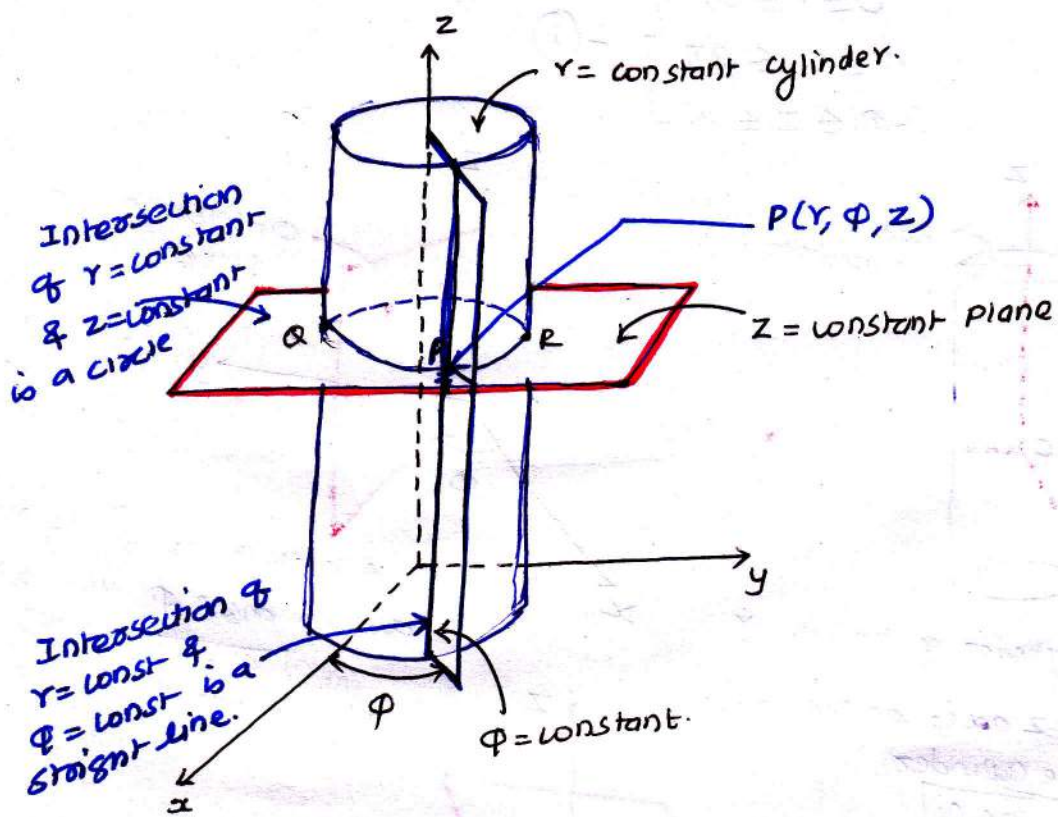 z
r = constant cylinder.
Intersection
of r = constant
& z=constant
is a circle
P(r, φ, z)
Q
P
R
z = constant plane
y
Intersection of
r = const &
φ = const is a
straignt line.
φ
φ = constant.
x